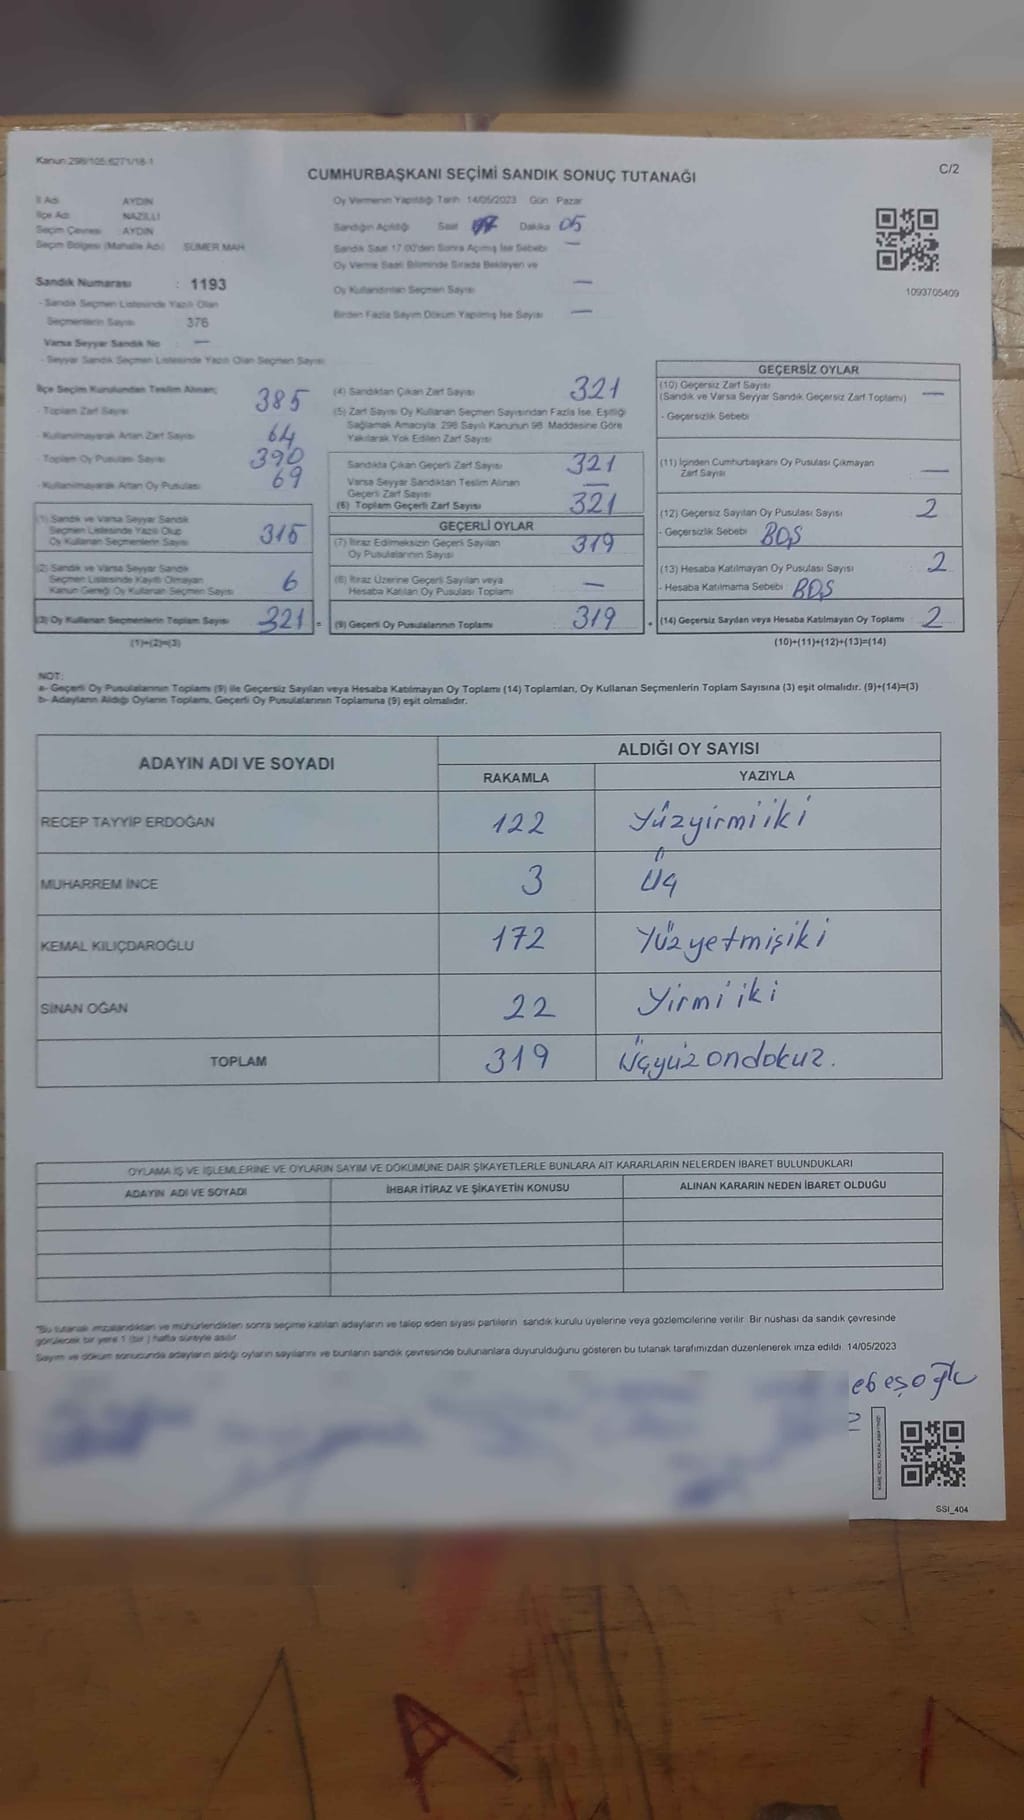 Kanun:298/105;6271/18-1
C/2
CUMHURBAŞKANI SEÇİMİ SANDIK SONUÇ TUTANAĞI
İl Adı AYDIN
İlçe Adı NAZİLLİ
Seçim Çevresi AYDIN
Seçim Bölgesi (Mahalle Adı) SÜMER MAH
Oy Vermenin Yapıldığı Tarih 14/05/2023 Gün Pazar
Sandığın Açıldığı Saat 17 Dakika 05
Sandık Saat 17.00'den Sonra Açılmış İse Sebebi —
Oy Verme Saati Bitiminde Sırada Bekleyen ve
Oy Kullandırılan Seçmen Sayısı —
Birden Fazla Sayım Döküm Yapılmış İse Sayısı —
1093705409
Sandık Numarası : 1193
- Sandık Seçmen Listesinde Yazılı Olan
Seçmenlerin Sayısı 376
Varsa Seyyar Sandık No —
- Seyyar Sandık Seçmen Listesinde Yazılı Olan Seçmen Sayısı
İlçe Seçim Kurulundan Teslim Alınan;
- Toplam Zarf Sayısı 385
- Kullanılmayarak Artan Zarf Sayısı 64
- Toplam Oy Pusulası Sayısı 390
- Kullanılmayarak Artan Oy Pusulası 69
(1) Sandık ve Varsa Seyyar Sandık
Seçmen Listesinde Yazılı Olup
Oy Kullanan Seçmenlerin Sayısı 315
(2) Sandık ve Varsa Seyyar Sandık
Seçmen Listesinde Kayıtlı Olmayan
Kanun Gereği Oy Kullanan Seçmen Sayısı 6
(3) Oy Kullanan Seçmenlerin Toplam Sayısı 321 =
(1)+(2)=(3)
(4) Sandıktan Çıkan Zarf Sayısı 321
(5) Zarf Sayısı Oy Kullanan Seçmen Sayısından Fazla İse, Eşitliği
Sağlamak Amacıyla; 298 Sayılı Kanunun 98. Maddesine Göre
Yakılarak Yok Edilen Zarf Sayısı
Sandıkta Çıkan Geçerli Zarf Sayısı 321
Varsa Seyyar Sandıktan Teslim Alınan
Geçerli Zarf Sayısı —
(6) Toplam Geçerli Zarf Sayısı 321
GEÇERLİ OYLAR
(7) İtiraz Edilmeksizin Geçerli Sayılan
Oy Pusulalarının Sayısı 319
(8) İtiraz Üzerine Geçerli Sayılan veya
Hesaba Katılan Oy Pusulası Toplamı —
(9) Geçerli Oy Pusulalarının Toplamı 319 +
GEÇERSİZ OYLAR
(10) Geçersiz Zarf Sayısı
(Sandık ve Varsa Seyyar Sandık Geçersiz Zarf Toplamı) —
- Geçersizlik Sebebi
(11) İçinden Cumhurbaşkanı Oy Pusulası Çıkmayan
Zarf Sayısı —
(12) Geçersiz Sayılan Oy Pusulası Sayısı 2
- Geçersizlik Sebebi BOŞ
(13) Hesaba Katılmayan Oy Pusulası Sayısı 2
- Hesaba Katılmama Sebebi BOŞ
(14) Geçersiz Sayılan veya Hesaba Katılmayan Oy Toplamı 2
(10)+(11)+(12)+(13)=(14)
NOT:
a- Geçerli Oy Pusulalarının Toplamı (9) ile Geçersiz Sayılan veya Hesaba Katılmayan Oy Toplamı (14) Toplamları, Oy Kullanan Seçmenlerin Toplam Sayısına (3) eşit olmalıdır. (9)+(14)=(3)
b- Adayların Aldığı Oyların Toplamı, Geçerli Oy Pusulalarının Toplamına (9) eşit olmalıdır.
ADAYIN ADI VE SOYADI
ALDIĞI OY SAYISI
RAKAMLA YAZIYLA
RECEP TAYYİP ERDOĞAN 122 Yüzyirmiiki
MUHARREM İNCE 3 Üç
KEMAL KILIÇDAROĞLU 172 Yüzyetmişiki
SİNAN OĞAN 22 Yirmiiki
TOPLAM 319 Üçyüzondokuz.
OYLAMA İŞ VE İŞLEMLERİNE VE OYLARIN SAYIM VE DÖKÜMÜNE DAİR ŞİKAYETLERLE BUNLARA AİT KARARLARIN NELERDEN İBARET BULUNDUKLARI
ADAYIN ADI VE SOYADI İHBAR İTİRAZ VE ŞİKAYETİN KONUSU ALINAN KARARIN NEDEN İBARET OLDUĞU
*Bu tutanak imzalandıktan ve mühürlendikten sonra seçime katılan adayların ve talep eden siyasi partilerin sandık kurulu üyelerine veya gözlemcilerine verilir. Bir nüshası da sandık çevresinde
görülecek bir yere 1 (bir) hafta süreyle asılır.
Sayım ve döküm sonucunda adayların aldığı oyların sayılarını ve bunların sandık çevresinde bulunanlara duyurulduğunu gösteren bu tutanak tarafımızdan düzenlenerek imza edildi. 14/05/2023
ebeşoğlu
KARE KODU KARALAMAYINIZ!
SSI_404